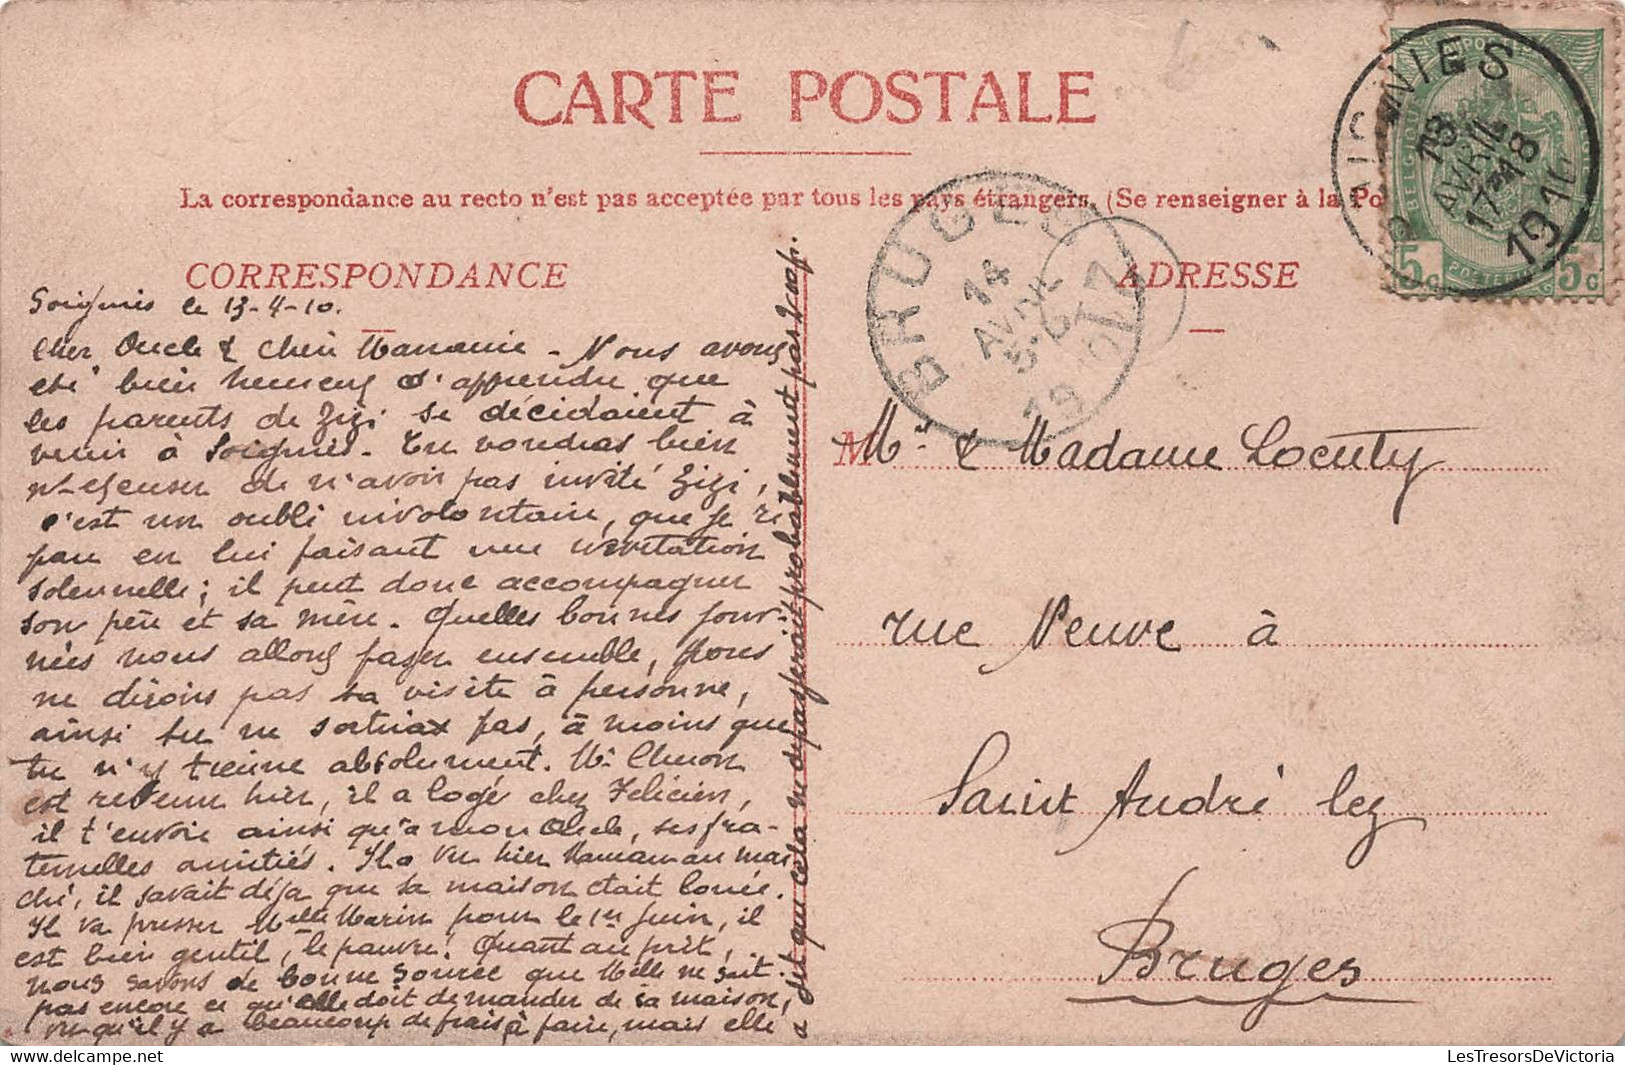 CARTE POSTALE
La correspondance au recto n'est pas acceptée par tous les pays étrangers. (Se renseigner à la Po
CORRESPONDANCE
Soignies le 13-4-10.
Cher Oncle & chère Nananie - Nous avons
été bien heureux d'apprendre que
les parents de Zizi se décidaient à
venir à Soignies. Tu voudras bien
m'excuser de n'avoir pas invité Zizi,
c'est un oubli involontaire, que je ré
pare en lui faisant une invitation
solennelle; il peut donc accompagner
son père et sa mère. Quelles bonnes jour-
nées nous allons passer ensemble, Nous
ne dirons pas ta visite à personne,
ainsi tu ne sortiras pas, à moins que
tu n'y tienne absolument. Mr
est revenu hier, il a logé chez Félicien,
il t'envoie ainsi qu'à mon Oncle, ses fra-
ternelles amitiés. Il a vu hier Maman au mar
ché, il savait déjà que ta maison était louée.
Il va presser Melle Marin pour le 1er Juin, il
est bien gentil, le pauvre! Quant au prêt,
nous savons de bonne source que Melle ne sait
pas encore ce qu'elle doit demander de sa maison,
vu qu'il y a beaucoup de frais à faire, mais elle
a dit que cela ne dépasserait probablement pas 2.000f.
ADRESSE
M
Mr & Madame Locuty
rue Neuve à
Saint André lez
Bruges
SOIGNIES
13
AVRIL
17-18
1910
BRUGES
14
AVRIL
1910
POSTES
BELGIQUE
POSTERIJEN
5c 5c
LesTresorsDeVictoria